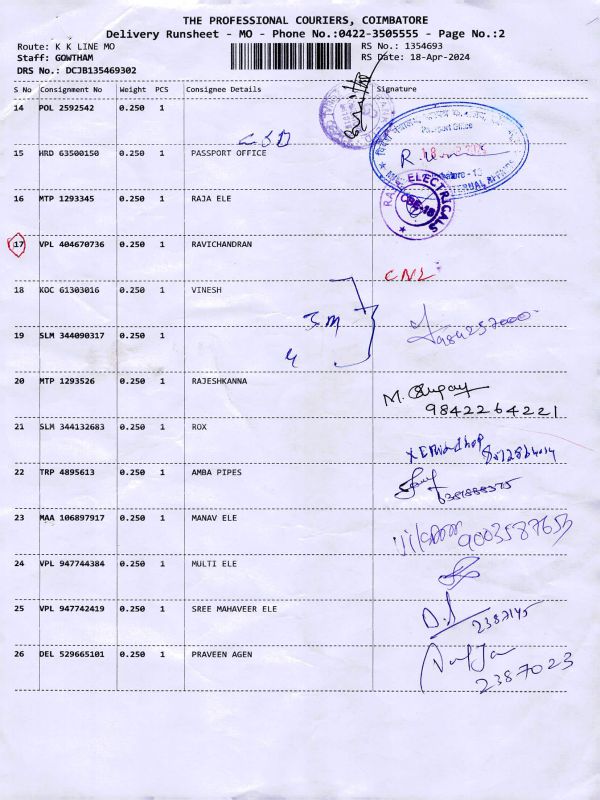 THE PROFESSIONAL COURIERS, COIMBATORE
Delivery Runsheet - MO - Phone No.:0422-3505555 - Page No.:2
Route: K K LINE MO
RS No.: 1354693
Staff: GOWTHAM
RS Date: 18-Apr-2024
DRS No.: DCJB135469302
S No Consignment No Weight PCS Consignee Details Signature
14 POL 2592542 0.250 1
15 HRD 63500150 0.250 1 PASSPORT OFFICE
Passport Office
16 MTP 1293345 0.250 1 RAJA ELE
ELECTRICALS
CBE-18
17 VPL 404670736 0.250 1 RAVICHANDRAN
CNL
18 KOC 61303016 0.250 1 VINESH
3m
19 SLM 344090317 0.250 1
4
20 MTP 1293526 0.250 1 RAJESHKANNA
9842264221
21 SLM 344132683 0.250 1 ROX
22 TRP 4895613 0.250 1 AMBA PIPES
23 MAA 106897917 0.250 1 MANAV ELE
9003587653
24 VPL 947744384 0.250 1 MULTI ELE
25 VPL 947742419 0.250 1 SREE MAHAVEER ELE
2387145
26 DEL 529665101 0.250 1 PRAVEEN AGEN
2387023